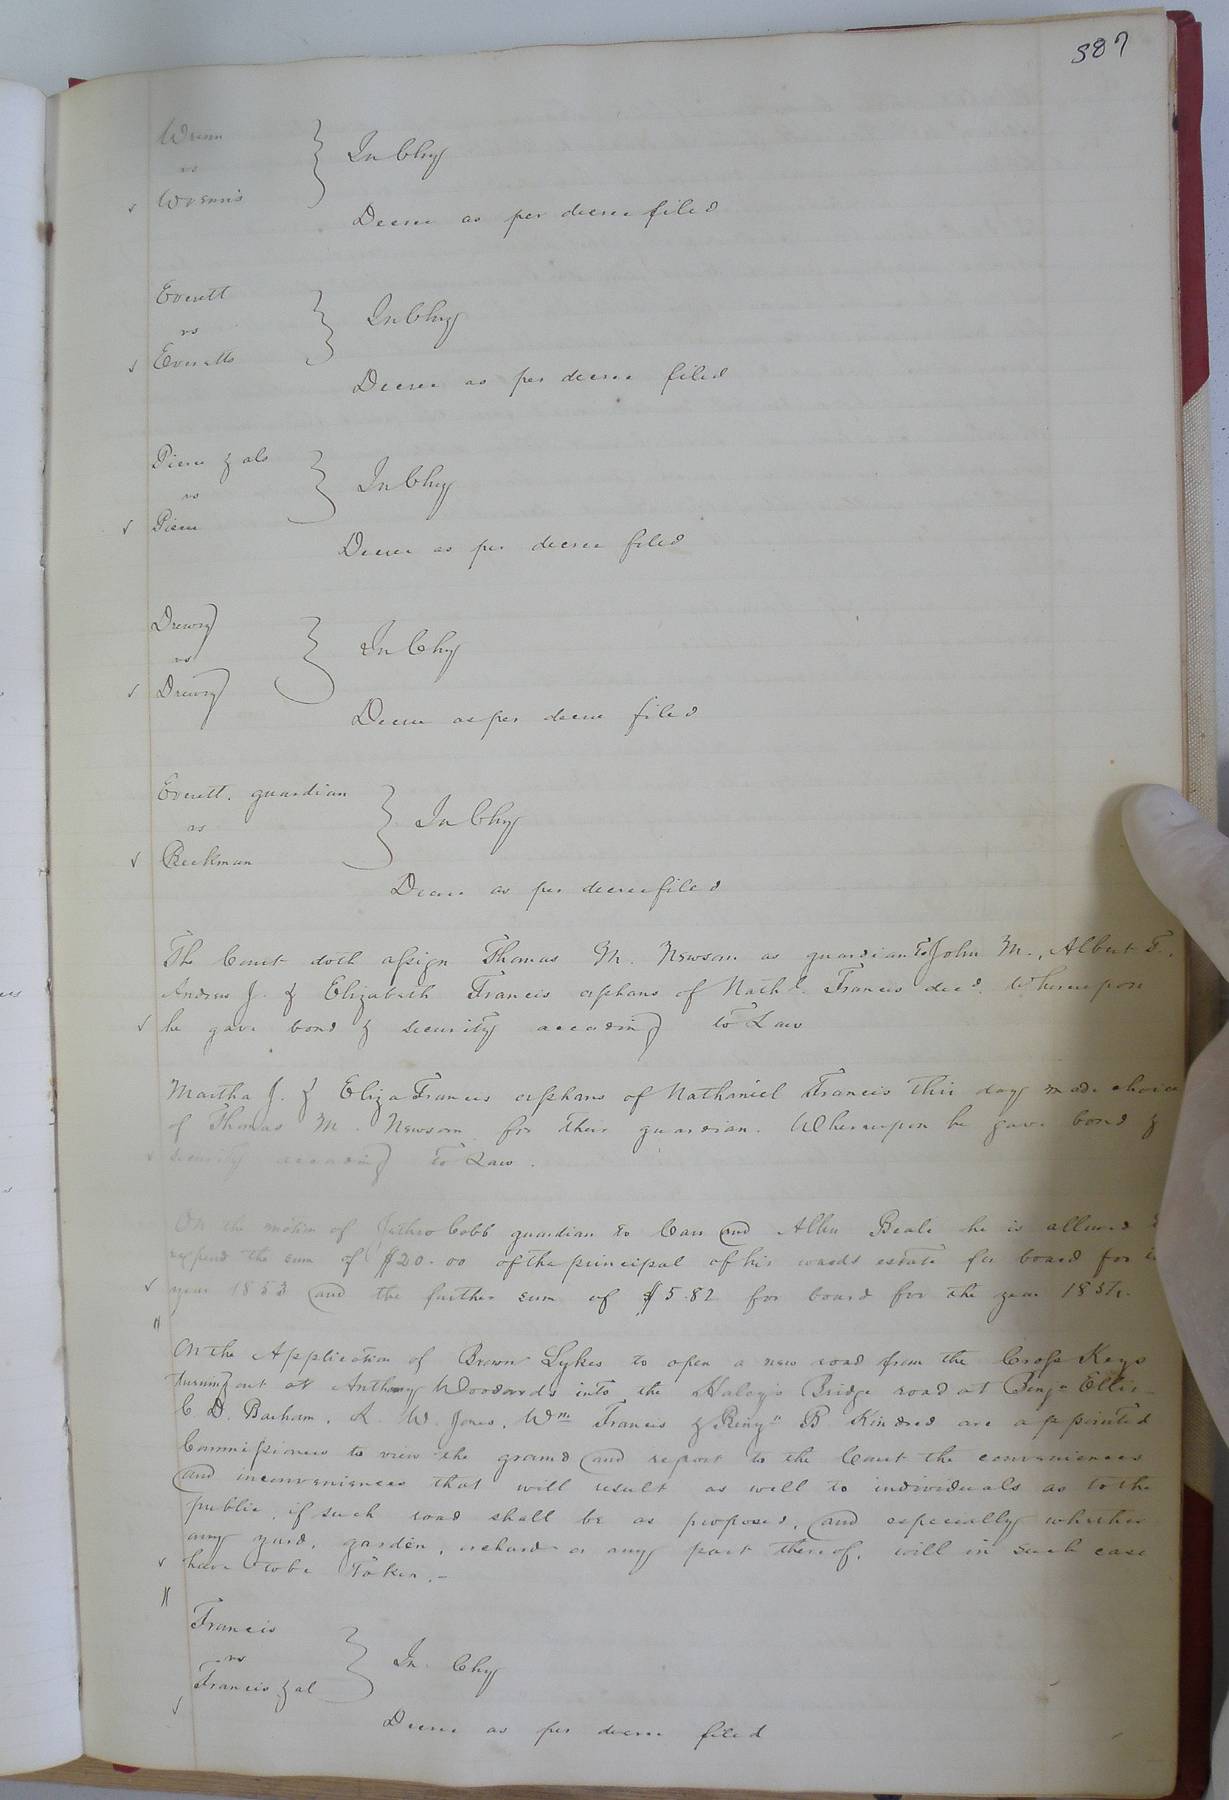 387
Wrenn
vs
Wrenns
In Chy
Decree as per decree filed
Everett
vs
Everetts
In Chy
Decree as per decree filed
Pierce & als
vs
Pierce
In Chy
Decree as per decree filed
Drewry
vs
Drewry
In Chy
Decree as per decree filed
Everett. guardian
vs
Beekman
In Chy
Decree as per decree filed
The Court doth assign Thomas M. Newsom as guardian to John M., Albert T.,
Andrew J. & Elizabeth Francis orphans of Nathl. Francis decd. Whereupon
he gave bond & security according to Law
Martha J. & Eliza Francis orphans of Nathaniel Francis this day made choice
of Thomas M. Newsom for their guardian. Whereupon he gave bond &
security according to Law.
On the motion of Jethro Cobb guardian to Cass and Allen Beale he is allowed
expend the sum of $20.00 of the principal of his wards estate for board for
year 1853 and the further sum of $5.82 for board for the year 1854.
On the Application of Brown Sykes to open a new road from the Cross Keys
turning out at Anthony Woodards into the Haley's Bridge road at Benjn Ellis
C D. Barham, R. W. Jones, Wm Francis & Benjn B. Kindred are appointed
Commissioners to view the ground and report to the Court the conveniences
and inconveniences that will result as well to individuals as to the
public, if such road shall be as proposed, and especially whether
any yard, garden, orchard or any part thereof, will in such case
have to be Taken.-
Francis
vs
Francis & al
In Chy
Decree as per decree filed